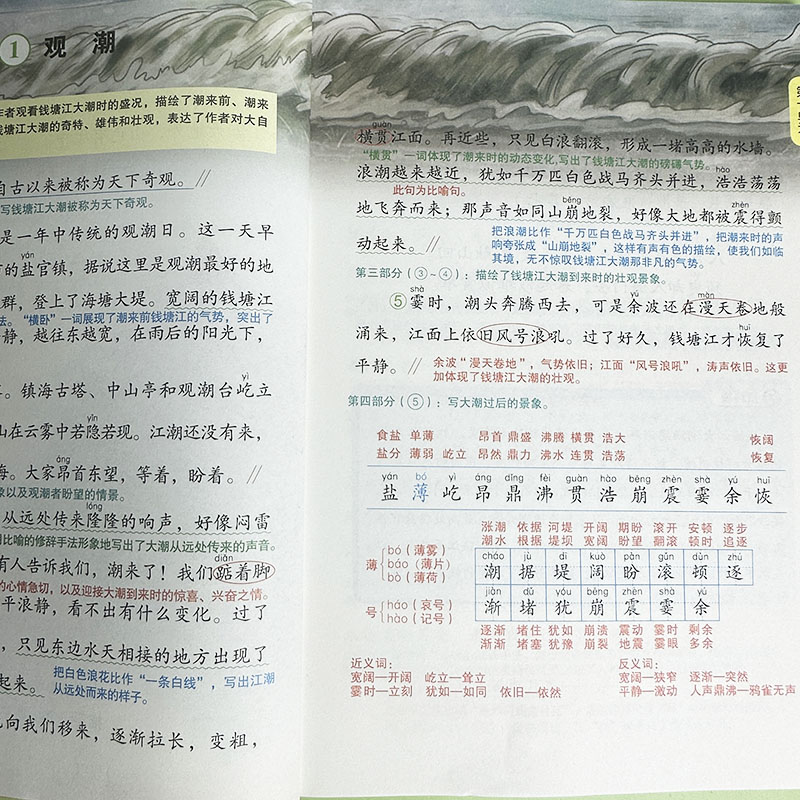 1 观 潮
作者观看钱塘江大潮时的盛况，描绘了潮来前、潮来
钱塘江大潮的奇特、雄伟和壮观，表达了作者对大自
自古以来被称为天下奇观。//
写钱塘江大潮被称为天下奇观。
是一年中传统的观潮日。这一天早
的盐官镇，据说这里是观潮最好的地
群，登上了海塘大堤。宽阔的钱塘江
法。“横卧”一词展现了潮来前钱塘江的气势，突出了
静，越往东越宽，在雨后的阳光下，
yì
。镇海古塔、中山亭和观潮台屹立
yǐn
山在云雾中若隐若现。江潮还没有来，
áng
海。大家昂首东望，等着，盼着。//
象以及观潮者盼望的情景。
lóng
从远处传来隆隆的响声，好像闷雷
用比喻的修辞手法形象地写出了大潮从远处传来的声音。
diǎn
有人告诉我们，潮来了！我们踮着脚
的心情急切，以及迎接大潮到来时的惊喜、兴奋之情。
平浪静，看不出有什么变化。过了
，只见东边水天相接的地方出现了
起来。
把白色浪花比作“一条白线”，写出江潮
从远处而来的样子。
向我们移来，逐渐拉长，变粗，
guàn
横贯江面。再近些，只见白浪翻滚，形成一堵高高的水墙。
“横贯”一词体现了潮来时的动态变化，写出了钱塘江大潮的磅礴气势。
hào
浪潮越来越近，犹如千万匹白色战马齐头并进，浩浩荡荡
此句为比喻句。
bēng zhèn
地飞奔而来；那声音如同山崩地裂，好像大地都被震得颤
动起来。//
把浪潮比作“千万匹白色战马齐头并进”，把潮来时的声
响夸张成“山崩地裂”，这样有声有色的描绘，使我们如临
其境，无不惊叹钱塘江大潮那非凡的气势。
第三部分（③~④）：描绘了钱塘江大潮到来时的壮观景象。
shà yú màn
⑤霎时，潮头奔腾西去，可是余波还在漫天卷地般
huī
涌来，江面上依旧风号浪吼。过了好久，钱塘江才恢复了
平静。//
余波“漫天卷地”，气势依旧；江面“风号浪吼”，涛声依旧。这更
加体现了钱塘江大潮的壮观。
第四部分（⑤）：写大潮过后的景象。
食盐 单薄 昂首 鼎盛 沸腾 横贯 浩大 恢阔
盐分 薄弱 屹立 昂然 鼎力 沸水 连贯 浩荡 恢复
yán bó yì áng dǐng fèi guàn hào bēng zhèn shà yú huī
盐 薄 屹 昂 鼎 沸 贯 浩 崩 震 霎 余 恢
涨潮 依据 河堤 开阔 期盼 滚开 安顿 逐步
潮水 根据 堤坝 宽阔 盼望 翻滚 顿时 追逐
薄 bó（薄雾） báo（薄片） bò（薄荷）
cháo jù dī kuò pàn gǔn dùn zhú
潮 据 堤 阔 盼 滚 顿 逐
号 háo（哀号） hào（记号）
jiàn dǔ yóu bēng zhèn shà yú
渐 堵 犹 崩 震 霎 余
逐渐 堵住 犹如 崩溃 震动 霎时 剩余
渐渐 堵塞 犹豫 崩裂 地震 霎眼 多余
近义词：
宽阔—开阔 屹立—耸立
霎时—立刻 犹如—如同 依旧—依然
反义词：
宽阔—狭窄 逐渐—突然
平静—激动 人声鼎沸—鸦雀无声